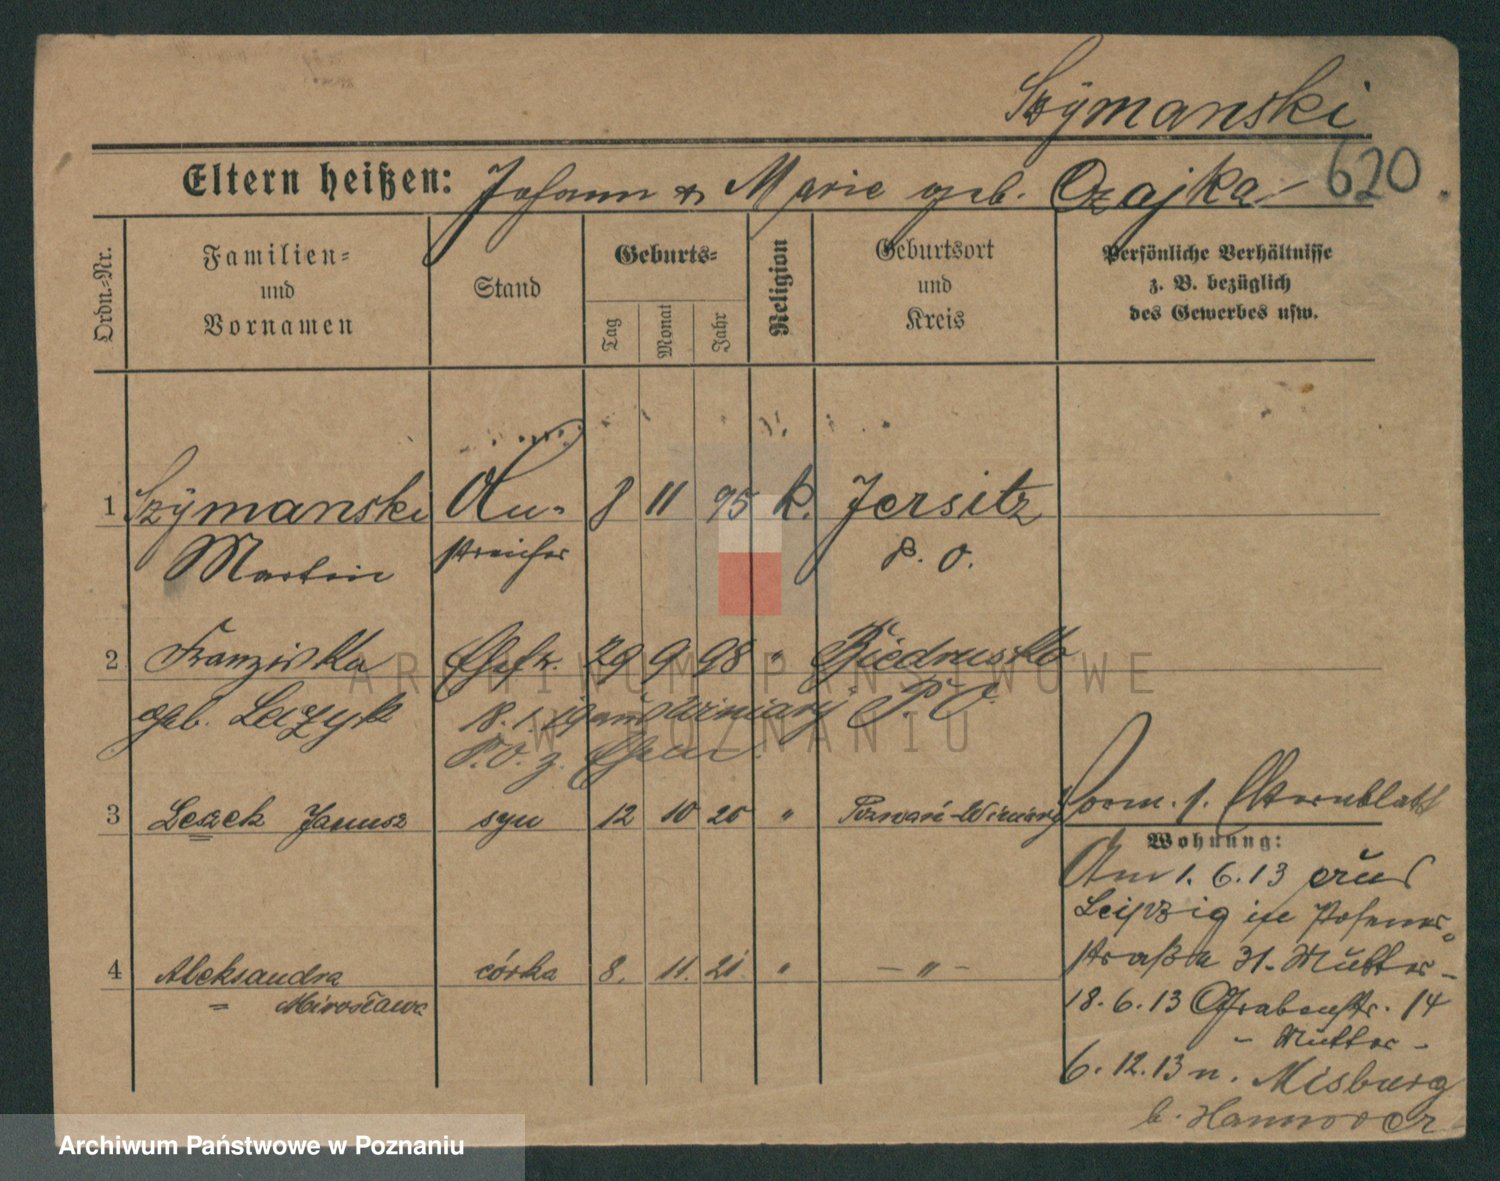 Szÿmanski
Eltern heißen: Johann & Marie geb. Czajka
620
Ordn.-Nr.
Familien-
und
Vornamen
Stand
Geburts-
Tag
Monat
Jahr
Religion
Geburtsort
und
Kreis
Persönliche Verhältnisse
z. B. bezüglich
des Gewerbes usw.
1 Szÿmanski An- 8 11 95 k. Jersitz
Martin streicher P. O.
2 Franziska Ehefr. 29 9 98 " Biedrusko
geb. Leczyk 18. 1. 19 P. O.
P. O. z.
3 Leszek Janusz syn 12 10 20 " Poznań-Winiary
4 Aleksandra córka 8. 11. 21 " - " -
" Mirosława
Vorm. s. Elternblatt
Wohnung:
Am 1. 6. 13 aus
Leipzig in Posener-
straße 31. Mutter -
18. 6. 13 Grabenstr. 14
- Mutter -
6. 12. 13 n. Misburg
b. Hannover
ARCHIWUM PAŃSTWOWE
W POZNANIU
Archiwum Państwowe w Poznaniu